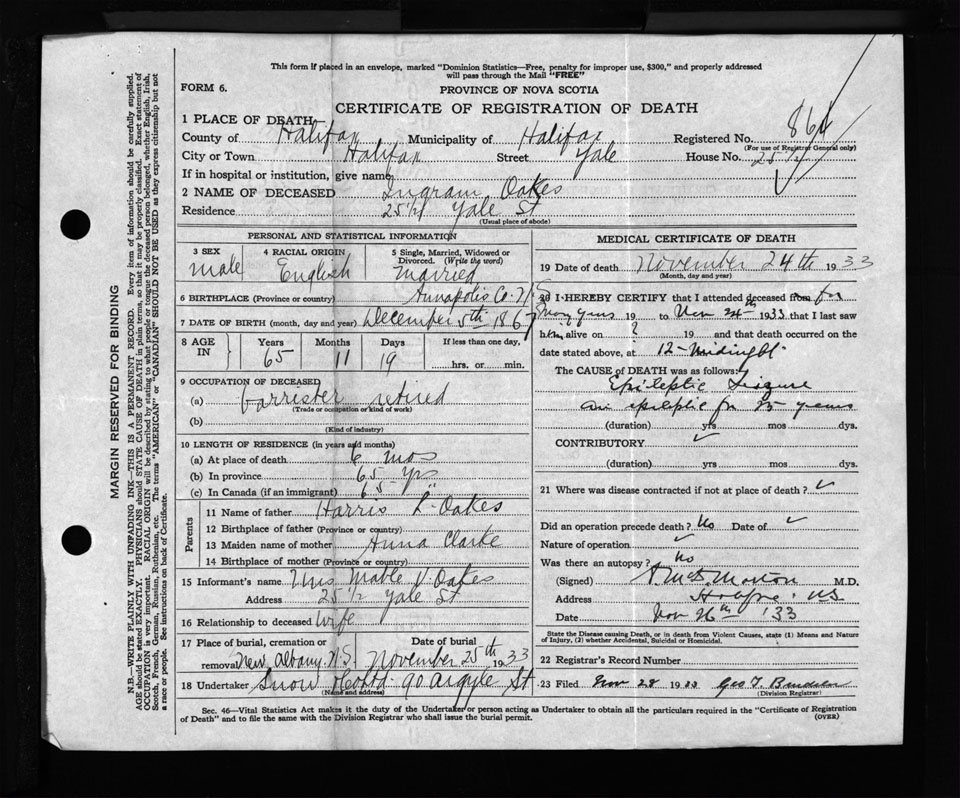 This form if placed in an envelope, marked "Dominion Statistics—Free, penalty for improper use, $300," and properly addressed
will pass through the Mail "FREE"
FORM 6.
PROVINCE OF NOVA SCOTIA
CERTIFICATE OF REGISTRATION OF DEATH
864
1 PLACE OF DEATH
County of Halifax Municipality of Halifax Registered No.
(For use of Registrar General only)
City or Town Halifax Street Yale House No. 25½
If in hospital or institution, give name
2 NAME OF DECEASED Ingram Oakes
Residence 25½ Yale St
(Usual place of abode)
PERSONAL AND STATISTICAL INFORMATION
3 SEX male
4 RACIAL ORIGIN English
5 Single, Married, Widowed or Divorced. (Write the word) Married
6 BIRTHPLACE (Province or country) Annapolis Co. N.S
7 DATE OF BIRTH (month, day and year) December 5th 1867
8 AGE IN Years 65 Months 11 Days 19 If less than one day, hrs. or min.
9 OCCUPATION OF DECEASED
(a) barrister retired
(Trade or occupation or kind of work)
(b)
(Kind of industry)
10 LENGTH OF RESIDENCE (in years and months)
(a) At place of death 6 mos
(b) In province 65 Yrs
(c) In Canada (if an immigrant) 65 "
Parents
11 Name of father Harris L. Oakes
12 Birthplace of father (Province or country)
13 Maiden name of mother Anna Clarke
14 Birthplace of mother (Province or country)
15 Informant's name Mrs Mable V. Oakes
Address 25½ Yale St
16 Relationship to deceased wife
17 Place of burial, cremation or removal New Albany N.S. Date of burial November 25th 1933
18 Undertaker Snow & Co Ltd. 90 Argyle St
(Name and address)
MEDICAL CERTIFICATE OF DEATH
19 Date of death November 24th 1933
(Month, day and year)
20 I HEREBY CERTIFY that I attended deceased from for
many years 19 to Nov 24th 1933 that I last saw
him alive on ? 19 and that death occurred on the
date stated above, at 12-Midnight
The CAUSE of DEATH was as follows:
Epileptic Seizure
An epileptic for 25 years
(duration) yrs mos dys.
CONTRIBUTORY
(duration) yrs mos dys.
21 Where was disease contracted if not at place of death?
Did an operation precede death? No Date of
Nature of operation
Was there an autopsy? No
(Signed) Morton M.D.
Address Halifax N.S
Date Nov 26th '33
State the Disease causing Death, or in death from Violent Causes, state (1) Means and Nature
of Injury, (2) whether Accidental, Suicidal or Homicidal.
22 Registrar's Record Number
23 Filed Nov 28 1933 Geo T.
(Division Registrar)
Sec. 46—Vital Statistics Act makes it the duty of the Undertaker or person acting as Undertaker to obtain all the particulars required in the "Certificate of Registration
of Death" and to file the same with the Division Registrar who shall issue the burial permit.
(OVER)
MARGIN RESERVED FOR BINDING
N.B.—WRITE PLAINLY WITH UNFADING INK—THIS IS A PERMANENT RECORD. Every item of information should be carefully supplied.
AGE should be stated EXACTLY. PHYSICIANS should STATE CAUSE OF DEATH in plain terms, so that it may be properly classified. Exact statement of
OCCUPATION is very important. RACIAL ORIGIN will be described by stating to what people or tongue the deceased person belonged, whether English, Irish,
Scotch, French, German, Russian, Ruthenian, etc. The terms "AMERICAN" or "CANADIAN" SHOULD NOT BE USED as they express citizenship but not
a race or people. See instructions on back of Certificate.